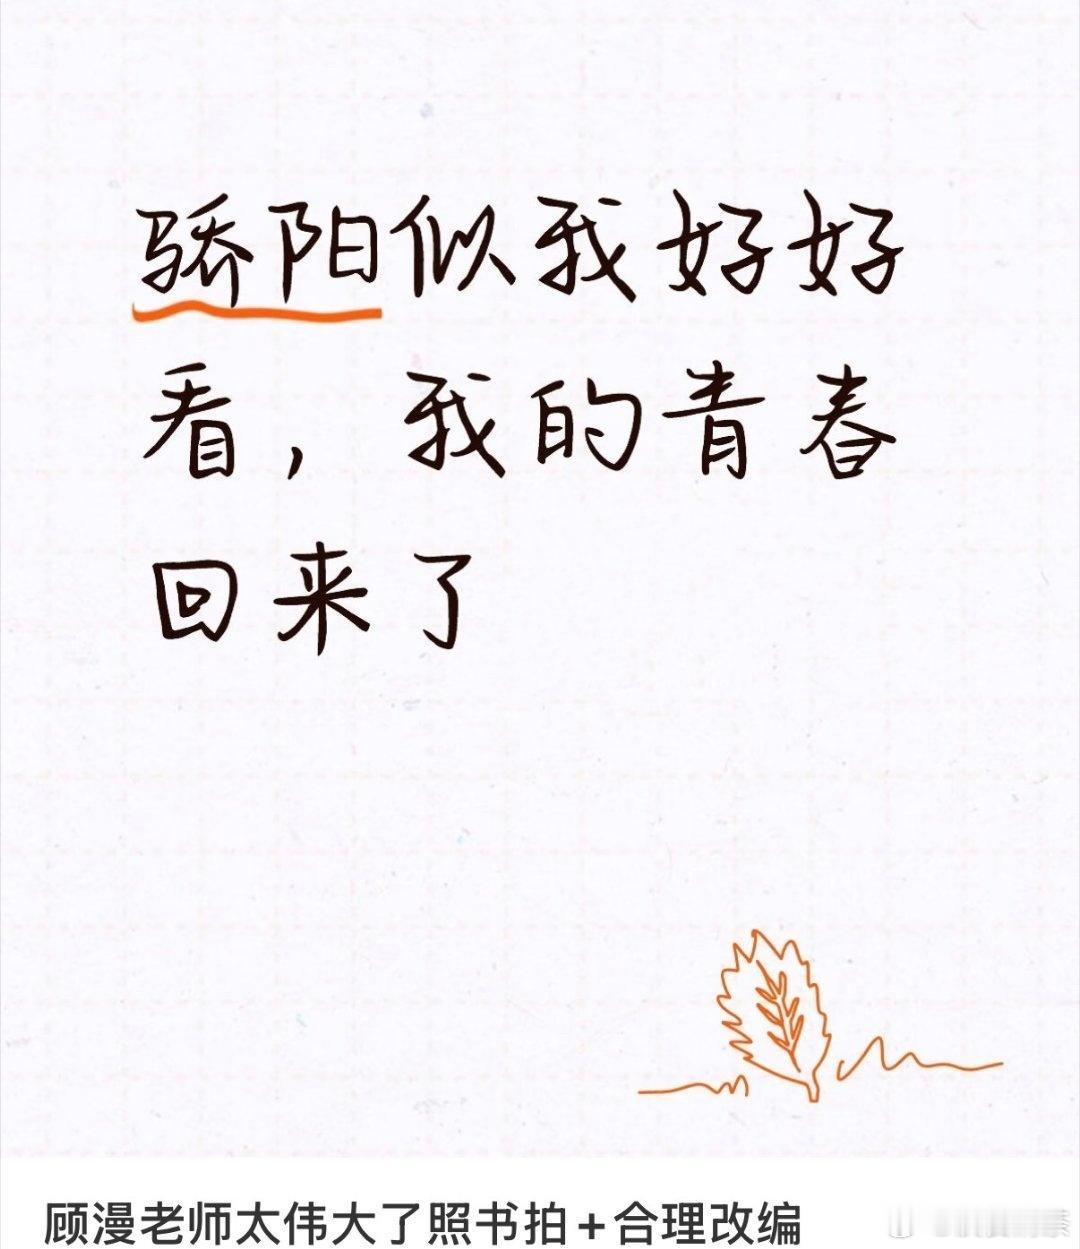 骄阳似我好好
看，我的青春
回来了
顾漫老师太伟大了照书拍+合理改编